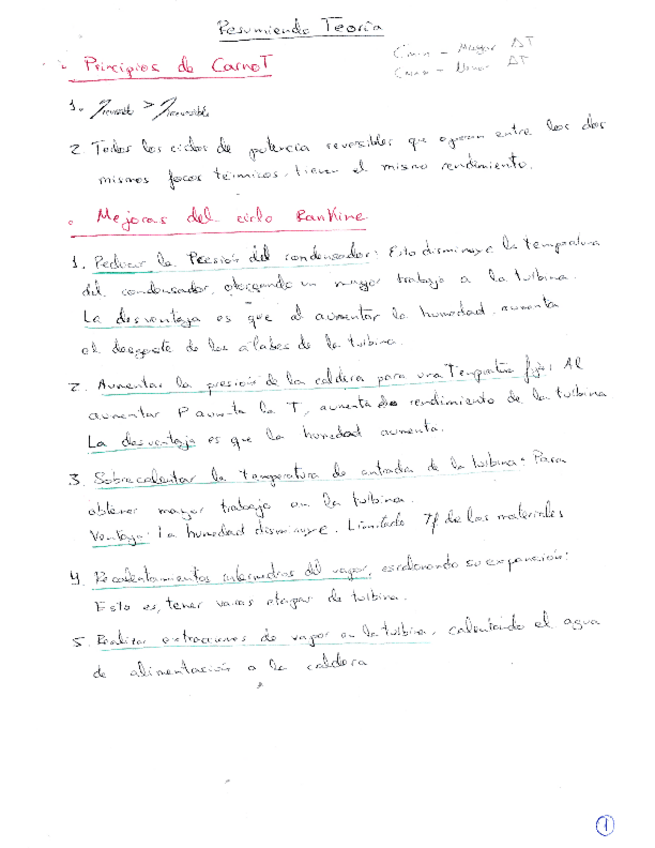 Resumiendo Teoría
Cmin - Mayor ΔT
Cmax - Menor ΔT
Principios de Carnot
1. η reversible > η irreversible
2. Todos los ciclos de potencia reversibles que operan entre los dos
mismos focos térmicos, tienen el mismo rendimiento.
Mejoras del ciclo Rankine
1. Reducir la Presión del condensador: Esto disminuye la temperatura
del condensador, otorgando un mayor trabajo a la turbina.
La desventaja es que al aumentar la humedad, aumenta
el desgaste de los alabes de la turbina.
2. Aumentar la presión de la caldera para una Temperatura fija: Al
aumentar P aumenta la T, aumenta rendimiento de la turbina
La desventaja es que la humedad aumenta.
3. Sobrecalentar la temperatura de entrada de la turbina: Para
obtener mayor trabajo en la turbina.
Ventaja: la humedad disminuye. Limitado Tf de los materiales
4. Recalentamientos intermedios del vapor, escalonando su expansión:
Esto es, tener varias etapas de turbina.
5. Realizar extracciones de vapor en la turbina, calentando el agua
de alimentación a la caldera
1